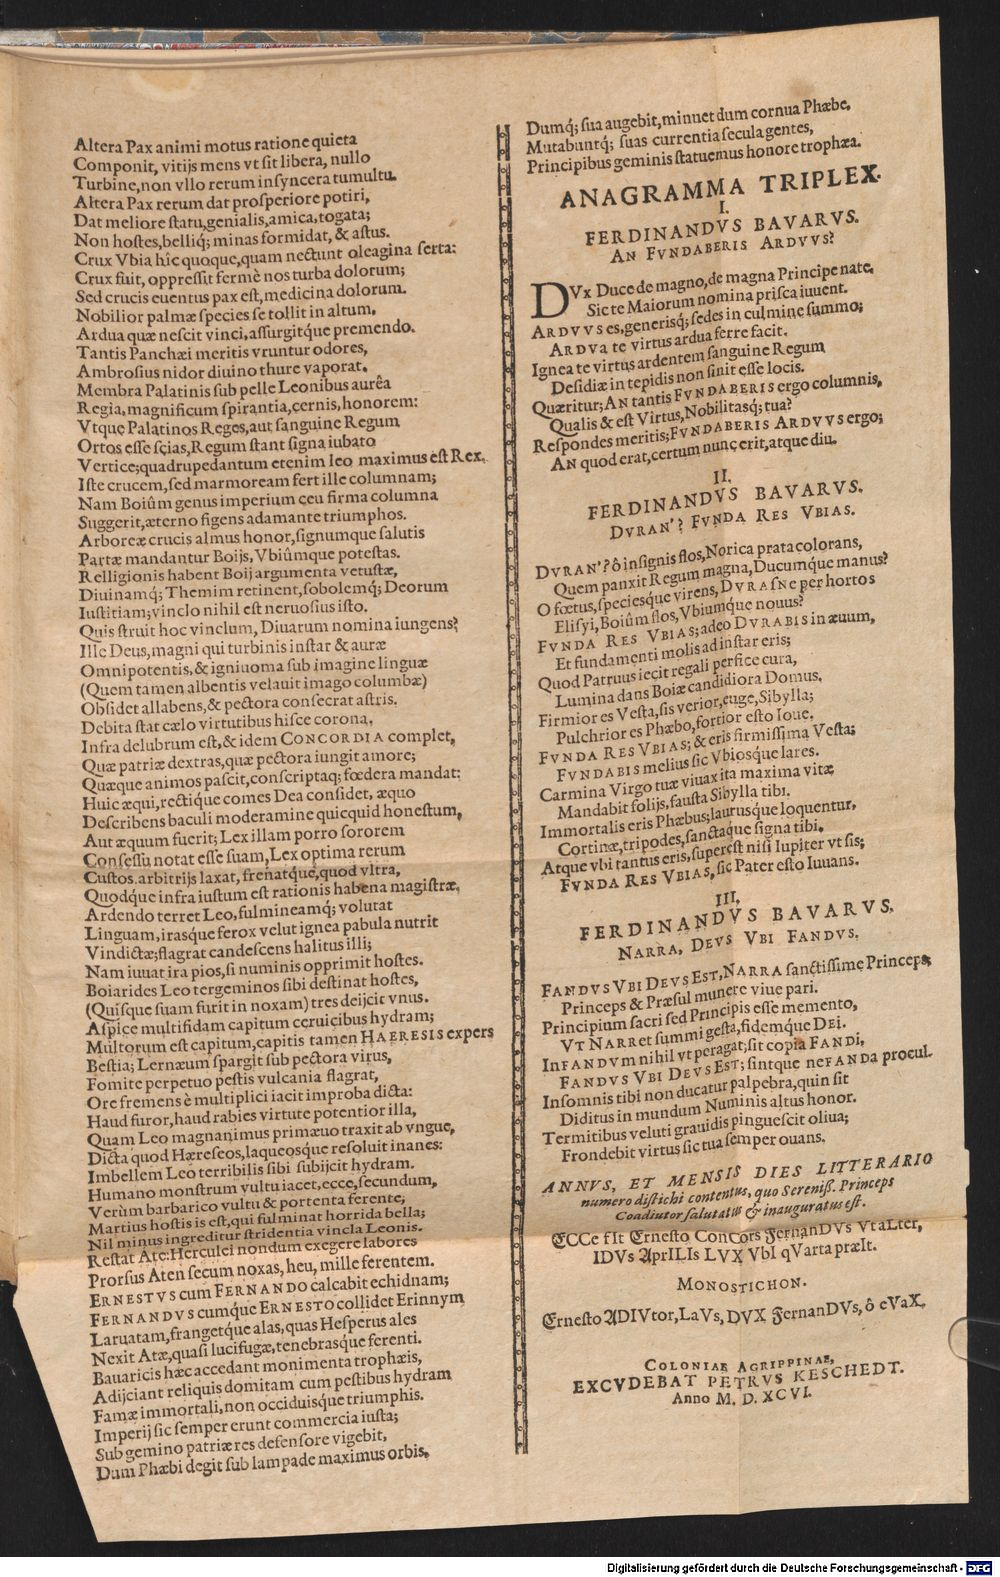 Altera Pax animi motus ratione quieta
Componit, vitijs mens vt sit libera, nullo
Turbine, non vllo rerum insyncera tumultu.
Altera Pax rerum dat prosperiore potiri,
Dat meliore statu, genialis, amica, togata;
Non hostes, belliq; minas formidat, & astus.
Crux Vbia hic quoque, quam nectunt oleagina serta:
Crux fuit, oppressit fermè nos turba dolorum;
Sed crucis euentus pax est, medicina dolorum.
Nobilior palmæ species se tollit in altum,
Ardua quæ nescit vinci, assurgitque premendo.
Tantis Panchæi meritis vruntur odores,
Ambrosius nidor diuino thure vaporat.
Membra Palatinis sub pelle Leonibus aureâ
Regia, magnificum spirantia, cernis, honorem:
Vtque Palatinos Reges, aut sanguine Regum
Ortos esse scias, Regum stant signa iubato
Vertice; quadrupedantum etenim leo maximus est Rex.
Iste crucem, sed marmoream fert ille columnam;
Nam Boiûm genus imperium ceu firma columna
Suggerit, æterno figens adamante triumphos.
Arboreæ crucis almus honor, signumque salutis
Partæ mandantur Boijs, Vbiûmque potestas.
Relligionis habent Boij argumenta vetustæ,
Diuinamq; Themim retinent, sobolemq; Deorum
Iustitiam; vinclo nihil est neruosius isto.
Quis struit hoc vinclum, Diuarum nomina iungens?
Ille Deus, magni qui turbinis instar & auræ
Omnipotentis, & igniuoma sub imagine linguæ
(Quem tamen albentis velauit imago columbæ)
Obsidet allabens, & pectora consecrat astris.
Debita stat cælo virtutibus hisce corona,
Infra delubrum est, & idem CONCORDIA complet,
Quæ patriæ dextras, quæ pectora iungit amore;
Quæque animos pascit, conscriptaq; fœdera mandat:
Huic æqui, rectique comes Dea considet, æquo
Describens baculi moderamine quicquid honestum,
Aut æquum fuerit; Lex illam porro sororem
Consessu notat esse suam, Lex optima rerum
Custos. arbitrijs laxat, frenatque, quod vltra,
Quodque infra iustum est rationis habena magistræ.
Ardendo terret Leo, fulmineamq; volutat
Linguam, irasque ferox velut ignea pabula nutrit
Vindictæ; flagrat candescens halitus illi;
Nam iuuat ira pios, si numinis opprimit hostes.
Boiarides Leo tergeminos sibi destinat hostes,
(Quisque suam furit in noxam) tres deijcit vnus.
Aspice multifidam capitum ceruicibus hydram;
Multorum est capitum, capitis tamen HAERESIS expers
Bestia; Lernæum spargit sub pectora virus,
Fomite perpetuo pestis vulcania flagrat,
Ore fremens è multiplici iacit improba dicta:
Haud furor, haud rabies virtute potentior illa,
Quam Leo magnanimus primæuo traxit ab vngue,
Dicta quod Hæreseos, laqueosque resoluit inanes:
Imbellem Leo terribilis sibi subijcit hydram.
Humano monstrum vultu iacet, ecce, secundum,
Verùm barbarico vultu & portenta ferente;
Martius hostis is est, qui fulminat horrida bella;
Nil minus ingreditur stridentia vincla Leonis.
Restat Ate: Herculei nondum exegere labores
Prorsus Aten secum noxas, heu, mille ferentem.
ERNESTVS cum FERNANDO calcabit echidnam;
FERNANDVS cumque ERNESTO collidet Erinnym
Laruatam, frangetque alas, quas Hesperus ales
Nexit Atæ, quasi lucifugæ, tenebrasque ferenti.
Bauaricis hæc accedant monimenta trophæis,
Adijciant reliquis domitam cum pestibus hydram
Famæ immortali, non occiduisque triumphis.
Imperij sic semper erunt commercia iusta;
Sub gemino patriæ res defensore vigebit,
Dum Phæbi degit sub lampade maximus orbis,
Dumq; sua augebit, minuet dum cornua Phæbe,
Mutabuntq; suas currentia secula gentes,
Principibus geminis statuemus honore trophæa.
ANAGRAMMA TRIPLEX.
I.
FERDINANDVS BAVARVS.
AN FVNDABERIS ARDVVS?
DVx Duce de magno, de magna Principe nate,
Sic te Maiorum nomina prisca iuuent.
ARDVVS es, generisq; sedes in culmine summo;
ARDVA te virtus ardua ferre facit.
Ignea te virtus ardentem sanguine Regum
Desidiæ in tepidis non sinit esse locis.
Quæritur; AN tantis FVNDABERIS ergo columnis,
Qualis & est Virtus, Nobilitasq; tua?
Respondes meritis; FVNDABERIS ARDVVS ergo;
AN quod erat, certum nunc erit, atque diu.
II.
FERDINANDVS BAVARVS.
DVRAN'? FVNDA RES VBIAS.
DVRAN'? ô insignis flos, Norica prata colorans,
Quem panxit Regum magna, Ducumque manus?
O fœtus, speciesque virens, DVRASNE per hortos
Elisyi, Boiûm flos, Vbiumque nouus?
FVNDA RES VBIAS; adeo DVRABIS in æuum,
Et fundamenti molis ad instar eris;
Quod Patruus iecit regali perfice cura,
Lumina dans Boiæ candidiora Domus.
Firmior es Vesta, sis verior, euge, Sibylla;
Pulchrior es Phæbo, fortior esto Ioue.
FVNDA RES VBIAS; & eris firmissima Vesta;
FVNDABIS melius sic Vbiosque lares.
Carmina Virgo tuæ viuax ita maxima vitæ
Mandabit folijs, fausta Sibylla tibi.
Immortalis eris Phæbus; laurusque loquentur,
Cortinæ, tripodes, sanctaque signa tibi.
Atque vbi tantus eris, superest nisi Iupiter vt sis;
FVNDA RES VBIAS, sic Pater esto Iuuans.
III.
FERDINANDVS BAVARVS.
NARRA, DEVS VBI FANDVS.
FANDVS VBI DEVS EST, NARRA sanctissime Princeps,
Princeps & Præsul munere viue pari.
Principium sacri sed Principis esse memento,
VT NARRet summi gesta, fidemque DEI.
InFANDVm nihil vt peragat; sit copia FANDI,
FANDVS VBI DEVS EST; sintque neFANDA procul.
Insomnis tibi non ducatur palpebra, quin sit
Diditus in mundum Numinis altus honor.
Termitibus veluti grauidis pinguescit oliua;
Frondebit virtus sic tua semper ouans.
ANNVS, ET MENSIS DIES LITTERARIO
numero distichi contentus, quo Sereniss. Princeps
Coadiutor salutatus & inauguratus est.
ECCe fIt Ernesto ConCors FernanDVs VtaLter,
IDVs AprILIs LVX VbI qVarta præIt.
MONOSTICHON.
Ernesto ADIVtor, LaVs, DVX FernanDVs, ô eVaX.
COLONIAE AGRIPPINAE,
EXCVDEBAT PETRVS KESCHEDT.
Anno M. D. XCVI.
Digitalisierung gefördert durch die Deutsche Forschungsgemeinschaft - DFG